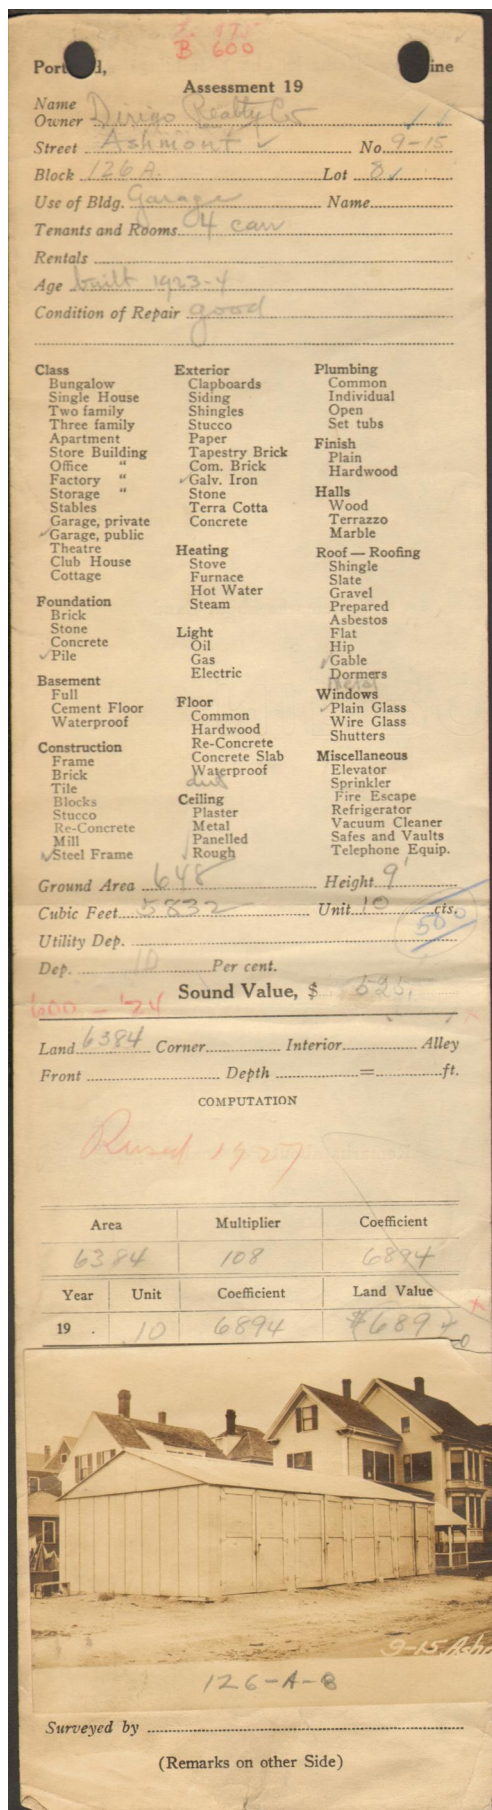 B 600
Port d, ine
Assessment 19
Name
Owner Dirigo Realty Co
Street Ashmont ✓ No. 9-15
Block 126 A. Lot 8 ✓
Use of Bldg. Garage Name
Tenants and Rooms 4 cars
Rentals
Age built 1923-4
Condition of Repair good
Class
Bungalow
Single House
Two family
Three family
Apartment
Store Building
Office "
Factory "
Storage "
Stables
Garage, private
✓ Garage, public
Theatre
Club House
Cottage
Foundation
Brick
Stone
Concrete
✓ Pile
Basement
Full
Cement Floor
Waterproof
Construction
Frame
Brick
Tile
Blocks
Stucco
Re-Concrete
Mill
✓ Steel Frame
Exterior
Clapboards
Siding
Shingles
Stucco
Paper
Tapestry Brick
Com. Brick
✓ Galv. Iron
Stone
Terra Cotta
Concrete
Heating
Stove
Furnace
Hot Water
Steam
Light
Oil
Gas
Electric
Floor
Common
Hardwood
Re-Concrete
Concrete Slab
Waterproof
dirt
Ceiling
Plaster
Metal
Panelled
✓ Rough
Plumbing
Common
Individual
Open
Set tubs
Finish
Plain
Hardwood
Halls
Wood
Terrazzo
Marble
Roof — Roofing
Shingle
Slate
Gravel
Prepared
Asbestos
Flat
Hip
✓ Gable
Dormers
metal
Windows
✓ Plain Glass
Wire Glass
Shutters
Miscellaneous
Elevator
Sprinkler
Fire Escape
Refrigerator
Vacuum Cleaner
Safes and Vaults
Telephone Equip.
Ground Area 648 Height 9'
Cubic Feet 5832 Unit 10 cts.
500
Utility Dep.
Dep. 10 Per cent.
Sound Value, $ 525.
600 - '24
Land 6384 Corner Interior Alley
Front Depth = ft.
COMPUTATION
Rused 1927
Area Multiplier Coefficient
6384 108 6894
Year Unit Coefficient Land Value
19 . .10 6894 $689
9-15 Ash
126-A-8
Surveyed by
(Remarks on other Side)